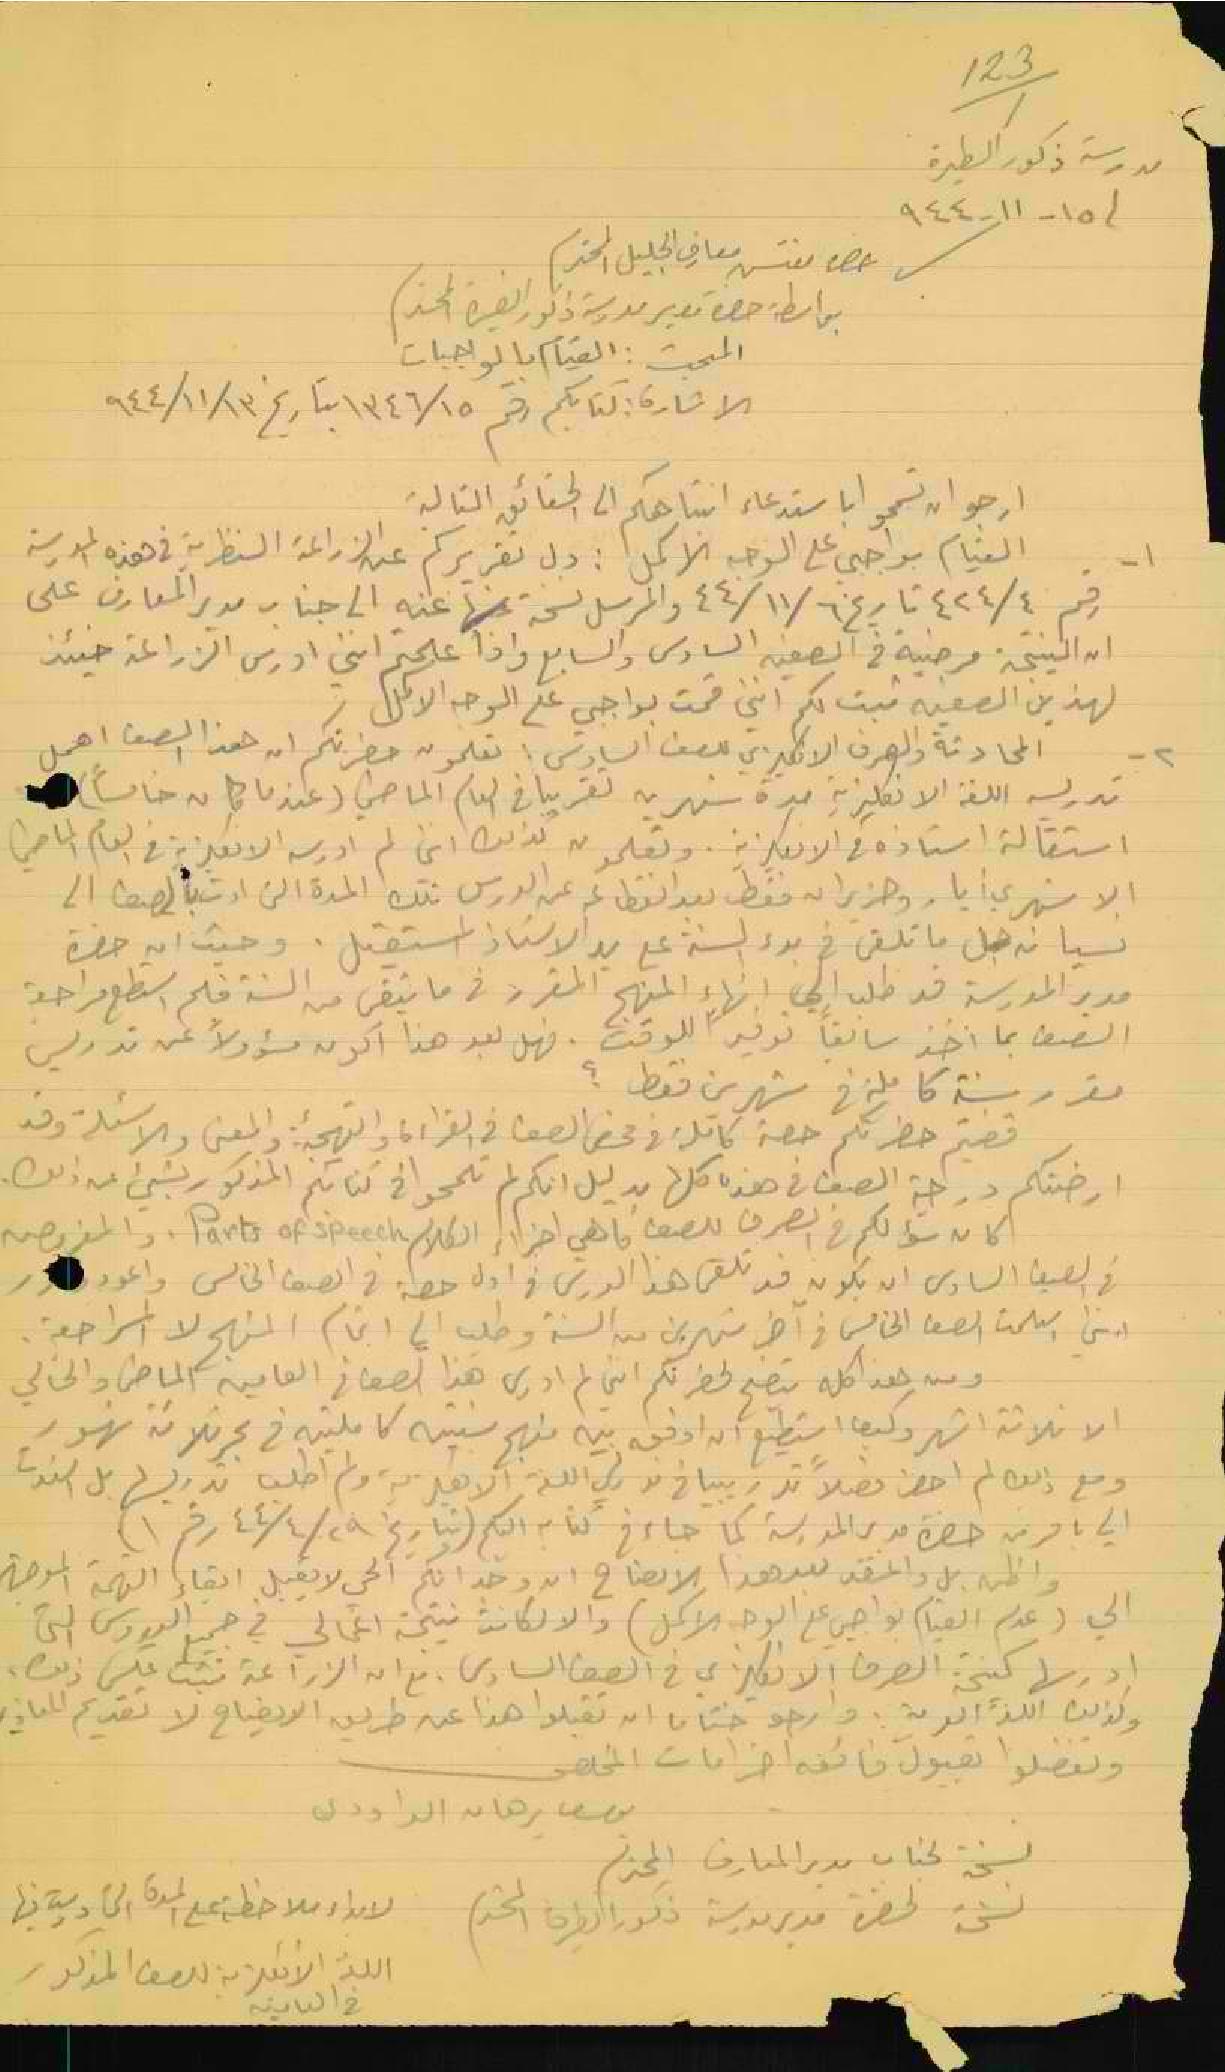 123
مدرسة ذكور الطيرة
في ١٥-١١-٩٤٤
حضرة مفتش معارف الجليل المحترم
بواسطة حضرة مدير مدرسة ذكور الطيرة المحترم
المبحث : القيام بالواجبات
الاشارة : كتابكم رقم ١٣٤٦/١٥ بتاريخ ٩٤٤/١١/١٣
ارجو ان تسمحوا باستدعاء انتباهكم الى الحقائق التالية
١- القيام بواجبي على الوجه الاكمل : دل تقريركم عن الزراعة النظرية في هذه المدرسة
رقم ٤٢٤/٤ تاريخ ٤٤/١١/٦ والمرسل نسخة عنه الى جناب مدير المعارف على
ان النتيجة مرضية في الصفين السادس والسابع واذا علمتم انني ادرس الزراعة حينئذ
لهذين الصفين ثبت لكم انني قمت بواجبي على الوجه الاكمل
٢- المحادثة والصرف الانكليزي للصف السادس : تعلمون حضرتكم ان هذا الصف اهمل
تدريس اللغة الانكليزية مدة شهرين تقريبا في العام الماضي (عندما كان خامساً)
استقالة استاذه في الانكليزية . وتعلمون كذلك انني لم ادرسه الانكليزية في العام الماضي
الا شهري أيار وحزيران فقط بعد انقطاعه عن الدرس تلك المدة التي ادت بالصف الى
نسيانه جل ما تلقى في بدء السنة على يد الاستاذ المستقيل . وحيث ان حضرة
مدير المدرسة قد طلب الي انهاء المنهج المقرر في ما تبقى من السنة فلم استطع مراجعة
الصف بما اخذ سابقاً توفيراً للوقت . فهل بعد هذا اكون مسؤولاً عن تدريس
مقرر سنة كاملة في شهرين فقط ؟
قضيتم حضرتكم حصة كاملة في فحص الصف في القراءة والتهجئة والمعنى والاسئلة وقد
ارضتكم درجة الصف في هذه كلها بدليل انكم لم تلمحوا في كتابكم المذكور بشيء من ذلك .
كان سؤالكم في الصرف للصف ما هي اجزاء الكلام Parts of speech . والمفروض
في الصف السادس ان يكون قد تلقى هذا الدرس في اول حصة في الصف الخامس واعود
انني استلمت الصف الخامس في آخر شهرين من السنة وطلب الي اتمام المنهج لا المراجعة .
ومن هذا كله يتضح لحضرتكم انني لم ادرس هذا الصف في العامين الماضي والحالي
الا ثلاثة اشهر وكيف استطيع ان اوفق بين منهج سنتين كاملتين في بحر ثلاثة شهور
ومع ذلك لم احضر فصلاً تدريبيا في تدريس اللغة الانكليزية ولم اطلب تدريسها بل اسندت
الي بامر من حضرة مدير المدرسة كما جاء في كتابه اليكم (بتاريخ ٤٤/٤/٢٩ رقم ١)
واظن بل واعتقد بعد هذا الايضاح ان وجدانكم الحي لا يقبل ابقاء التهمة الموجهة
الي (عدم القيام بواجبي على الوجه الاكمل) والا لكانت نتيجة اعمالي في جميع الدروس التي
ادرسها كنتيجة الصرف الانكليزي في الصف السادس . مع ان الزراعة تثبت عكس ذلك ،
وكذلك اللغة العربية . وارجو ختاما ان تقبلوا هذا عن طريق الايضاح لا تقديم المعاذير
وتفضلوا بقبول فائق احترامات المخلص
يوسف برهان الداودي
نسخة لجناب مدير المعارف المحترم
نسخة لحضرة مدير مدرسة ذكور الطيرة المحترم لابداء ملاحظة على المدة التي درست فيها
اللغة الانكليزية للصف المذكور
في العامين